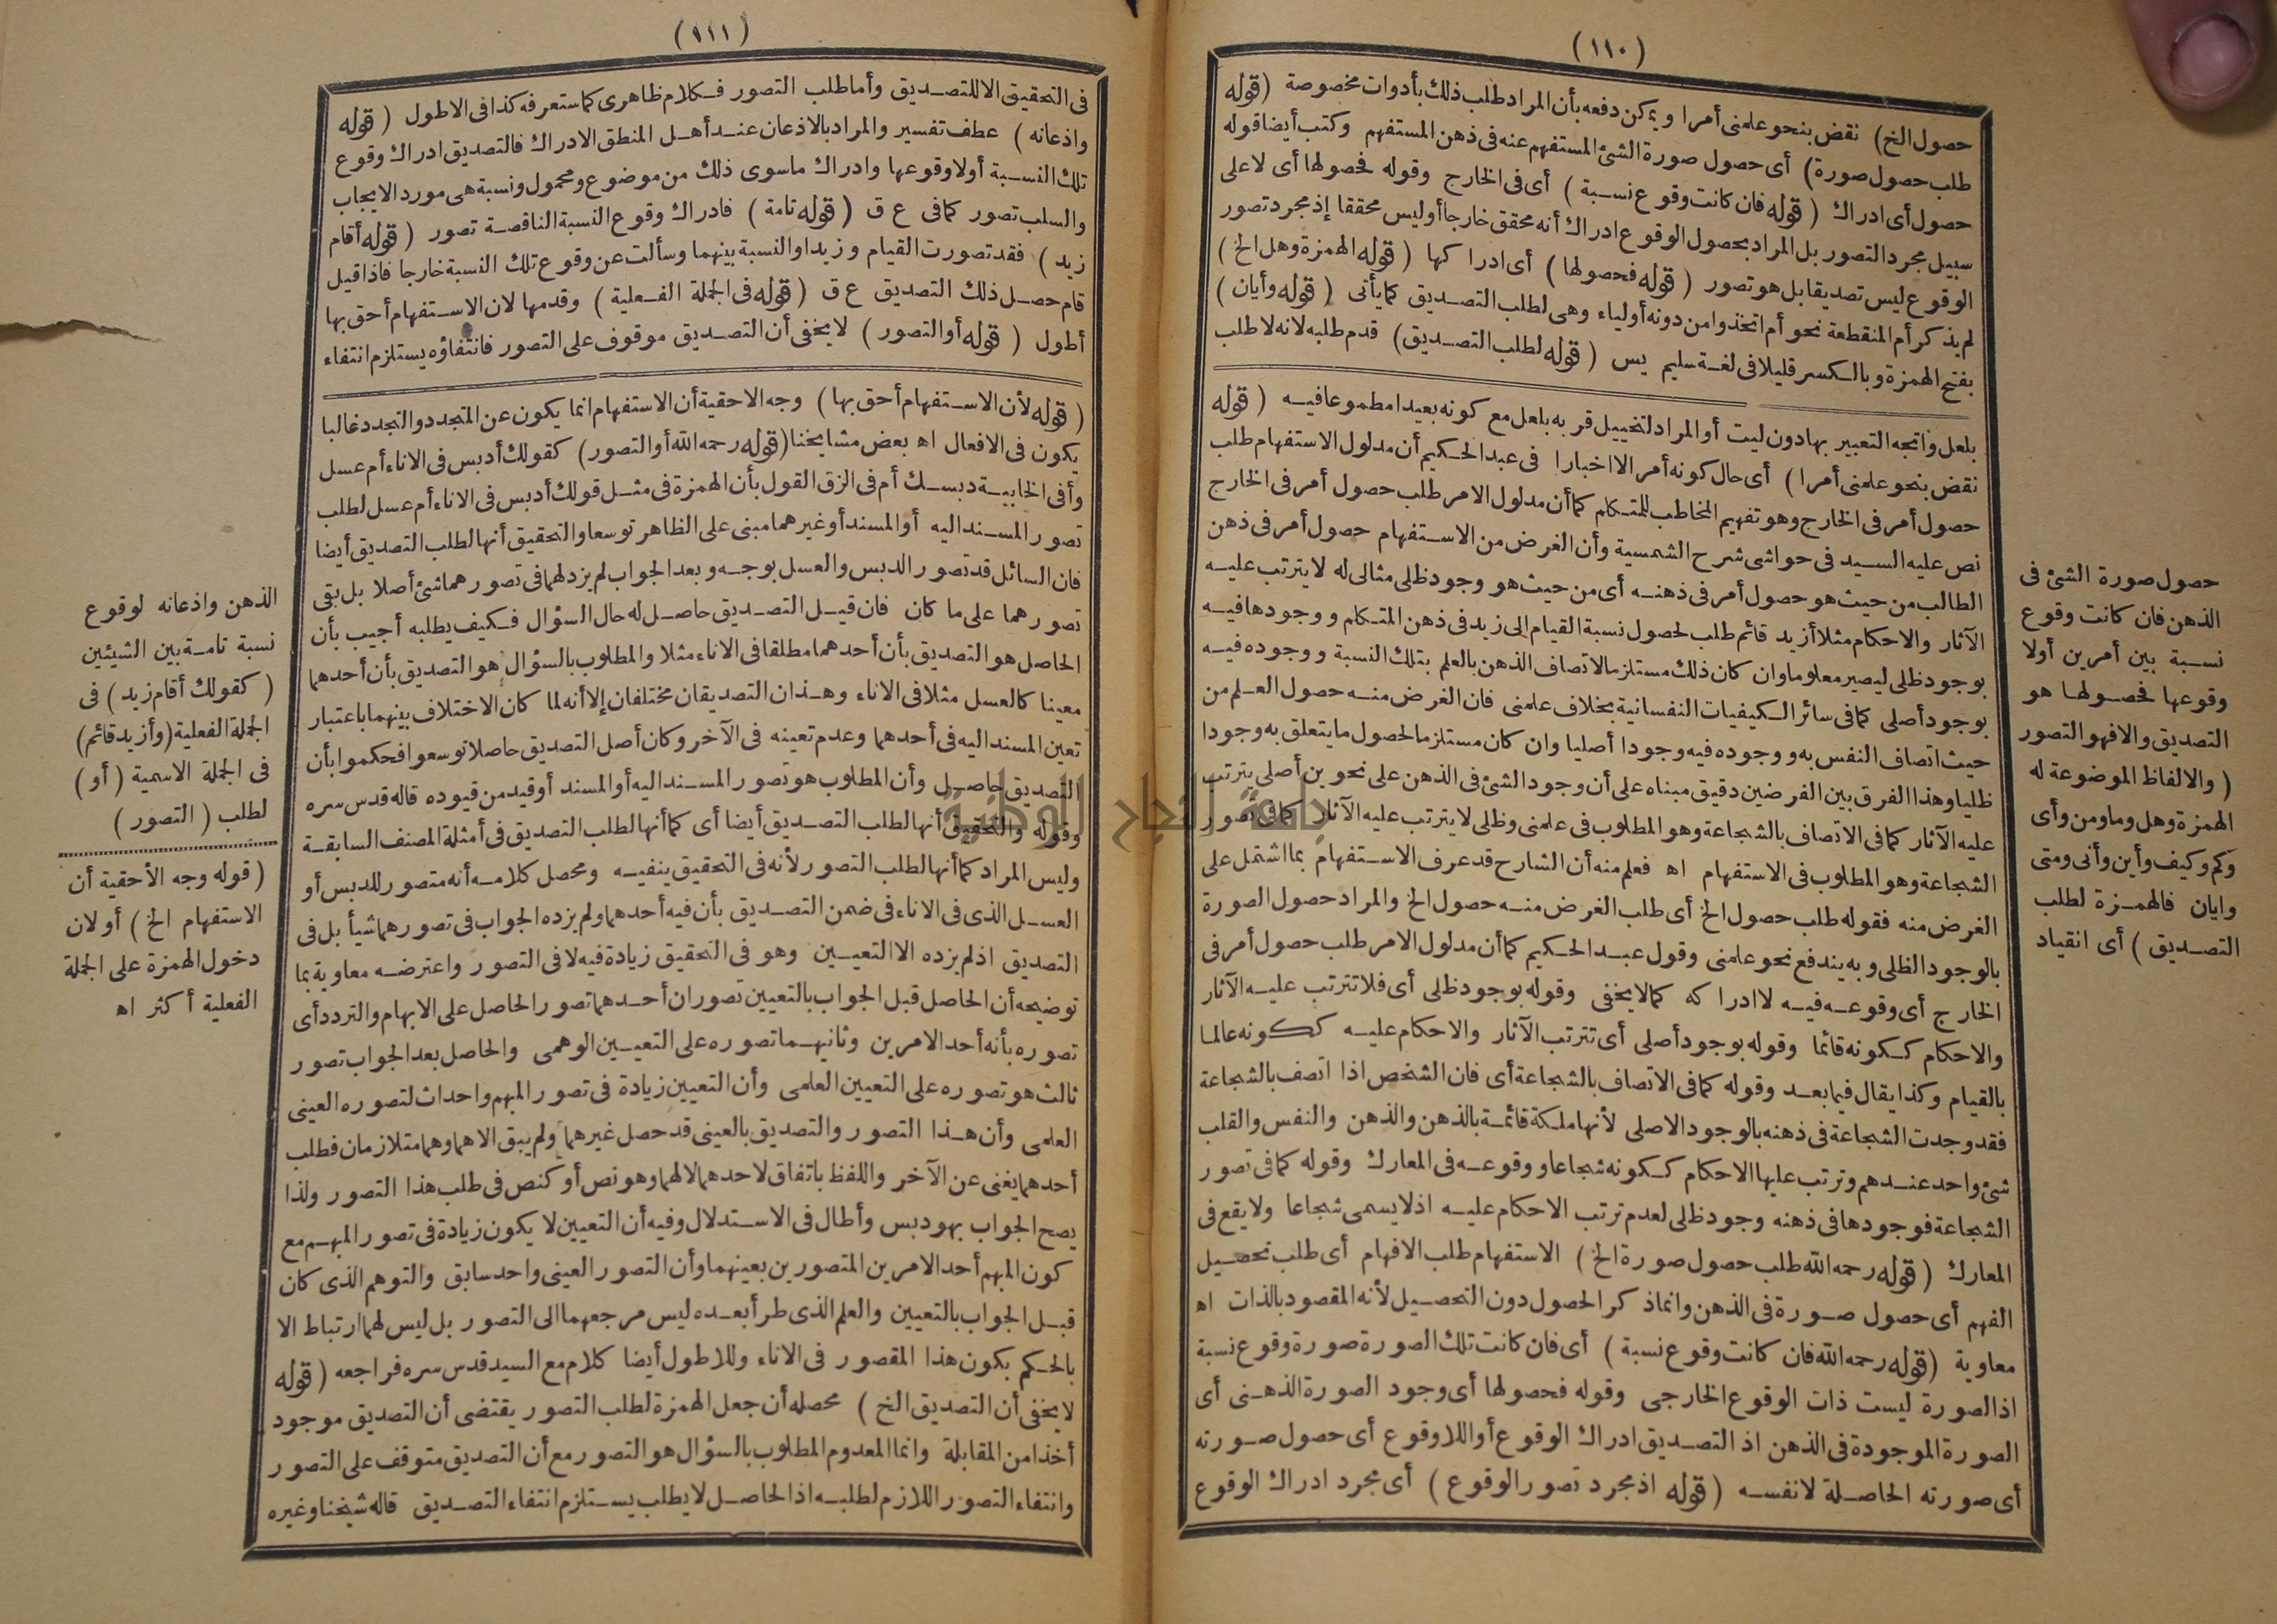 (١١٠)
حصول الخ) نقض بنحو علمنى أمرا ويمكن دفعه بأن المراد طلب ذلك بأدوات مخصوصة (قوله
طلب حصول صورة) أى حصول صورة الشئ المستفهم عنه فى ذهن المستفهم وكتب أيضا قوله
حصول أى ادراك (قوله فان كانت وقوع نسبة) أى فى الخارج وقوله فحصولها أى لا على
سبيل مجرد التصور بل المراد بحصول الوقوع ادراك أنه محقق خارجا أو ليس محققا إذ مجرد تصور
الوقوع ليس تصديقا بل هو تصور (قوله فحصولها) أى ادراكها (قوله الهمزة وهل الخ)
لم يذكر أم المنقطعة نحو أم اتخذوا من دونه أولياء وهى لطلب التصديق كما يأتى (قوله وأيان)
بفتح الهمزة وبالكسر قليلا فى لغة سليم يس (قوله لطلب التصديق) قدم طلبه لانه لا طلب
بلعل واتجه التعبير بها دون ليت أو المراد لتخييل قربه بلعل مع كونه بعيدا مطموعا فيه (قوله
نقض بنحو علمنى أمرا) أى حال كونه أمرا لا اخبارا فى عبد الحكيم أن مدلول الاستفهام طلب
حصول أمر فى الخارج وهو تفهيم المخاطب للمتكلم كما أن مدلول الامر طلب حصول أمر فى الخارج
نص عليه السيد فى حواشى شرح الشمسية وأن الغرض من الاستفهام حصول أمر فى ذهن
الطالب من حيث هو حصول أمر فى ذهنه أى من حيث هو وجود ظلى مثالى له لا يترتب عليه
الآثار والاحكام مثلا أزيد قائم طلب لحصول نسبة القيام الى زيد فى ذهن المتكلم ووجودها فيه
بوجود ظلى ليصير معلوما وان كان ذلك مستلزما لاتصاف الذهن بالعلم بتلك النسبة ووجوده فيه
بوجود أصلى كما فى سائر الكيفيات النفسانية بخلاف علمنى فان الغرض منه حصول العلم من
حيث اتصاف النفس به ووجوده فيه وجودا أصليا وان كان مستلزما لحصول ما يتعلق به وجودا
ظليا وهذا الفرق بين الفرضين دقيق مبناه على أن وجود الشئ فى الذهن على نحوين أصلى يترتب
عليه الآثار كما فى الاتصاف بالشجاعة وهو المطلوب فى علمنى وظلى لا يترتب عليه الآثار كما فى تصور
الشجاعة وهو المطلوب فى الاستفهام اه فعلم منه أن الشارح قد عرف الاستفهام بما اشتمل على
الغرض منه فقوله طلب حصول الخ أى طلب الغرض منه حصول الخ والمراد حصول الصورة
بالوجود الظلى وبه يندفع نحو علمنى وقول عبد الحكيم كما أن مدلول الامر طلب حصول أمر فى
الخارج أى وقوعه فيه لا ادراكه كما لا يخفى وقوله بوجود ظلى أى فلا تترتب عليه الآثار
والاحكام ككونه قائما وقوله بوجود أصلى أى تترتب الآثار والاحكام عليه ككونه عالما
بالقيام وكذا يقال فيما بعد وقوله كما فى الاتصاف بالشجاعة أى فان الشخص اذا اتصف بالشجاعة
فقد وجدت الشجاعة فى ذهنه بالوجود الاصلى لأنها ملكة قائمة بالذهن والذهن والنفس والقلب
شئ واحد عندهم وترتب عليها الاحكام ككونه شجاعا ووقوعه فى المعارك وقوله كما فى تصور
الشجاعة فوجودها فى ذهنه وجود ظلى لعدم ترتب الاحكام عليه اذ لا يسمى شجاعا ولا يقع فى
المعارك (قوله رحمه الله طلب حصول صورة الخ) الاستفهام طلب الافهام أى طلب تحصيل
الفهم أى حصول صورة فى الذهن وانما ذكر الحصول دون التحصيل لأنه المقصود بالذات اه
معاوية (قوله رحمه الله فان كانت وقوع نسبة) أى فان كانت تلك الصورة صورة وقوع نسبة
اذ الصورة ليست ذات الوقوع الخارجى وقوله فحصولها أى وجود الصورة الذهنى أى
الصورة الموجودة فى الذهن اذ التصديق ادراك الوقوع أو اللاوقوع أى حصول صورته
أى صورته الحاصلة لا نفسه (قوله اذ مجرد تصور الوقوع) أى مجرد ادراك الوقوع
حصول صورة الشئ فى
الذهن فان كانت وقوع
نسبة بين أمرين أو لا
وقوعها فحصولها هو
التصديق والا فهو التصور
(والالفاظ الموضوعة له
الهمزة وهل وما ومن وأى
وكم وكيف وأين وأنى ومتى
وايان فالهمزة لطلب
التصديق) أى انقياد
(١١١)
فى التحقيق الا للتصديق وأما طلب التصور فكلام ظاهرى كما ستعرفه كذا فى الاطول (قوله
واذعانه) عطف تفسير والمراد بالاذعان عند أهل المنطق الادراك فالتصديق ادراك وقوع
تلك النسبة أو لا وقوعها وادراك ما سوى ذلك من موضوع ومحمول ونسبة هى مورد الايجاب
والسلب تصور كما فى ع ق (قوله تامة) فادراك وقوع النسبة الناقصة تصور (قوله أقام
زيد) فقد تصورت القيام وزيدا والنسبة بينهما وسألت عن وقوع تلك النسبة خارجا فاذا قيل
قام حصل ذلك التصديق ع ق (قوله فى الجملة الفعلية) وقدمها لان الاستفهام أحق بها
أطول (قوله أو التصور) لا يخفى أن التصديق موقوف على التصور فانتفاؤه يستلزم انتفاء
(قوله لأن الاستفهام أحق بها) وجه الاحقية أن الاستفهام انما يكون عن المتجدد والتجدد غالبا
يكون فى الافعال اه بعض مشايخنا (قوله رحمه الله أو التصور) كقولك أدبس فى الاناء أم عسل
وأفى الخابية دبسك أم فى الزق القول بأن الهمزة فى مثل قولك أدبس فى الاناء أم عسل لطلب
تصور المسند اليه أو المسند أو غيرهما مبنى على الظاهر توسعا والتحقيق أنها لطلب التصديق أيضا
فان السائل قد تصور الدبس والعسل بوجه وبعد الجواب لم يزد لهما فى تصورهما شئ أصلا بل بقى
تصورهما على ما كان فان قيل التصديق حاصل له حال السؤال فكيف يطلبه أجيب بأن
الحاصل هو التصديق بأن أحدهما مطلقا فى الاناء مثلا والمطلوب بالسؤال هو التصديق بأن أحدهما
معينا كالعسل مثلا فى الاناء وهذان التصديقان مختلفان إلا أنه لما كان الاختلاف بينهما باعتبار
تعين المسند اليه فى أحدهما وعدم تعينه فى الآخر وكان أصل التصديق حاصلا توسعوا فحكموا بأن
التصديق حاصل وأن المطلوب هو تصور المسند اليه أو المسند أو قيد من قيوده قاله قدس سره
وقوله والتحقيق أنها لطلب التصديق أيضا أى كما أنها لطلب التصديق فى أمثلة المصنف السابقة
وليس المراد كما أنها لطلب التصور لأنه فى التحقيق ينفيه ومحصل كلامه أنه متصور للدبس أو
العسل الذى فى الاناء فى ضمن التصديق بأن فيه أحدهما ولم يزده الجواب فى تصورهما شيأ بل فى
التصديق اذ لم يزده الا التعيين وهو فى التحقيق زيادة فيه لا فى التصور واعترضه معاوية بما
توضيحه أن الحاصل قبل الجواب بالتعيين تصوران أحدهما تصور الحاصل على الابهام والتردد أى
تصوره بأنه أحد الامرين وثانيهما تصوره على التعيين الوهمى والحاصل بعد الجواب تصور
ثالث هو تصوره على التعيين العلمى وأن التعيين زيادة فى تصور المبهم واحداث لتصوره العينى
العلمى وأن هذا التصور والتصديق بالعينى قد حصل غيرهما ولم يبق الا هما وهما متلازمان فطلب
أحدهما يغنى عن الآخر واللفظ باتفاق لاحدهما لا لهما وهو نص أو كنص فى طلب هذا التصور ولذا
يصح الجواب بهو دبس وأطال فى الاستدلال وفيه أن التعيين لا يكون زيادة فى تصور المبهم مع
كون المبهم أحد الامرين المتصورين بعينهما وأن التصور العينى واحد سابق والتوهم الذى كان
قبل الجواب بالتعيين والعلم الذى طرأ بعده ليس مرجعهما الى التصور بل ليس لهما ارتباط الا
بالحكم بكون هذا المقصور فى الاناء وللاطول أيضا كلام مع السيد قدس سره فراجعه (قوله
لا يخفى أن التصديق الخ) محصله أن جعل الهمزة لطلب التصور يقتضى أن التصديق موجود
أخذا من المقابلة وانما المعدوم المطلوب بالسؤال هو التصور مع أن التصديق متوقف على التصور
وانتفاء التصور اللازم لطلبه اذ الحاصل لا يطلب يستلزم انتفاء التصديق قاله شيخنا وغيره
الذهن واذعانه لوقوع
نسبة تامة بين الشيئين
(كقولك أقام زيد) فى
الجملة الفعلية (وأزيد قائم)
فى الجملة الاسمية (أو)
لطلب (التصور)
(قوله وجه الأحقية أن
الاستفهام الخ) أو لان
دخول الهمزة على الجملة
الفعلية أكثر اه
جامعة النجاح الوطنية